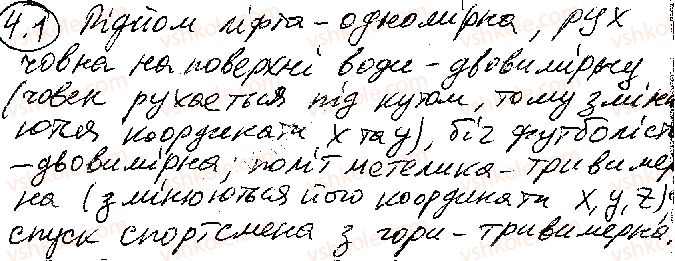 4.1 Підйом ліфта - одномірна, рух
човна на поверхні води - двовимірну
(човен рухається під кутом, тому зміню
ються координати x та y), біг футболіст
- двовимірна, політ метелика - тривимер
на (змінюються його координати x, y, z)
спуск спортсмена з гори - тривимерна.